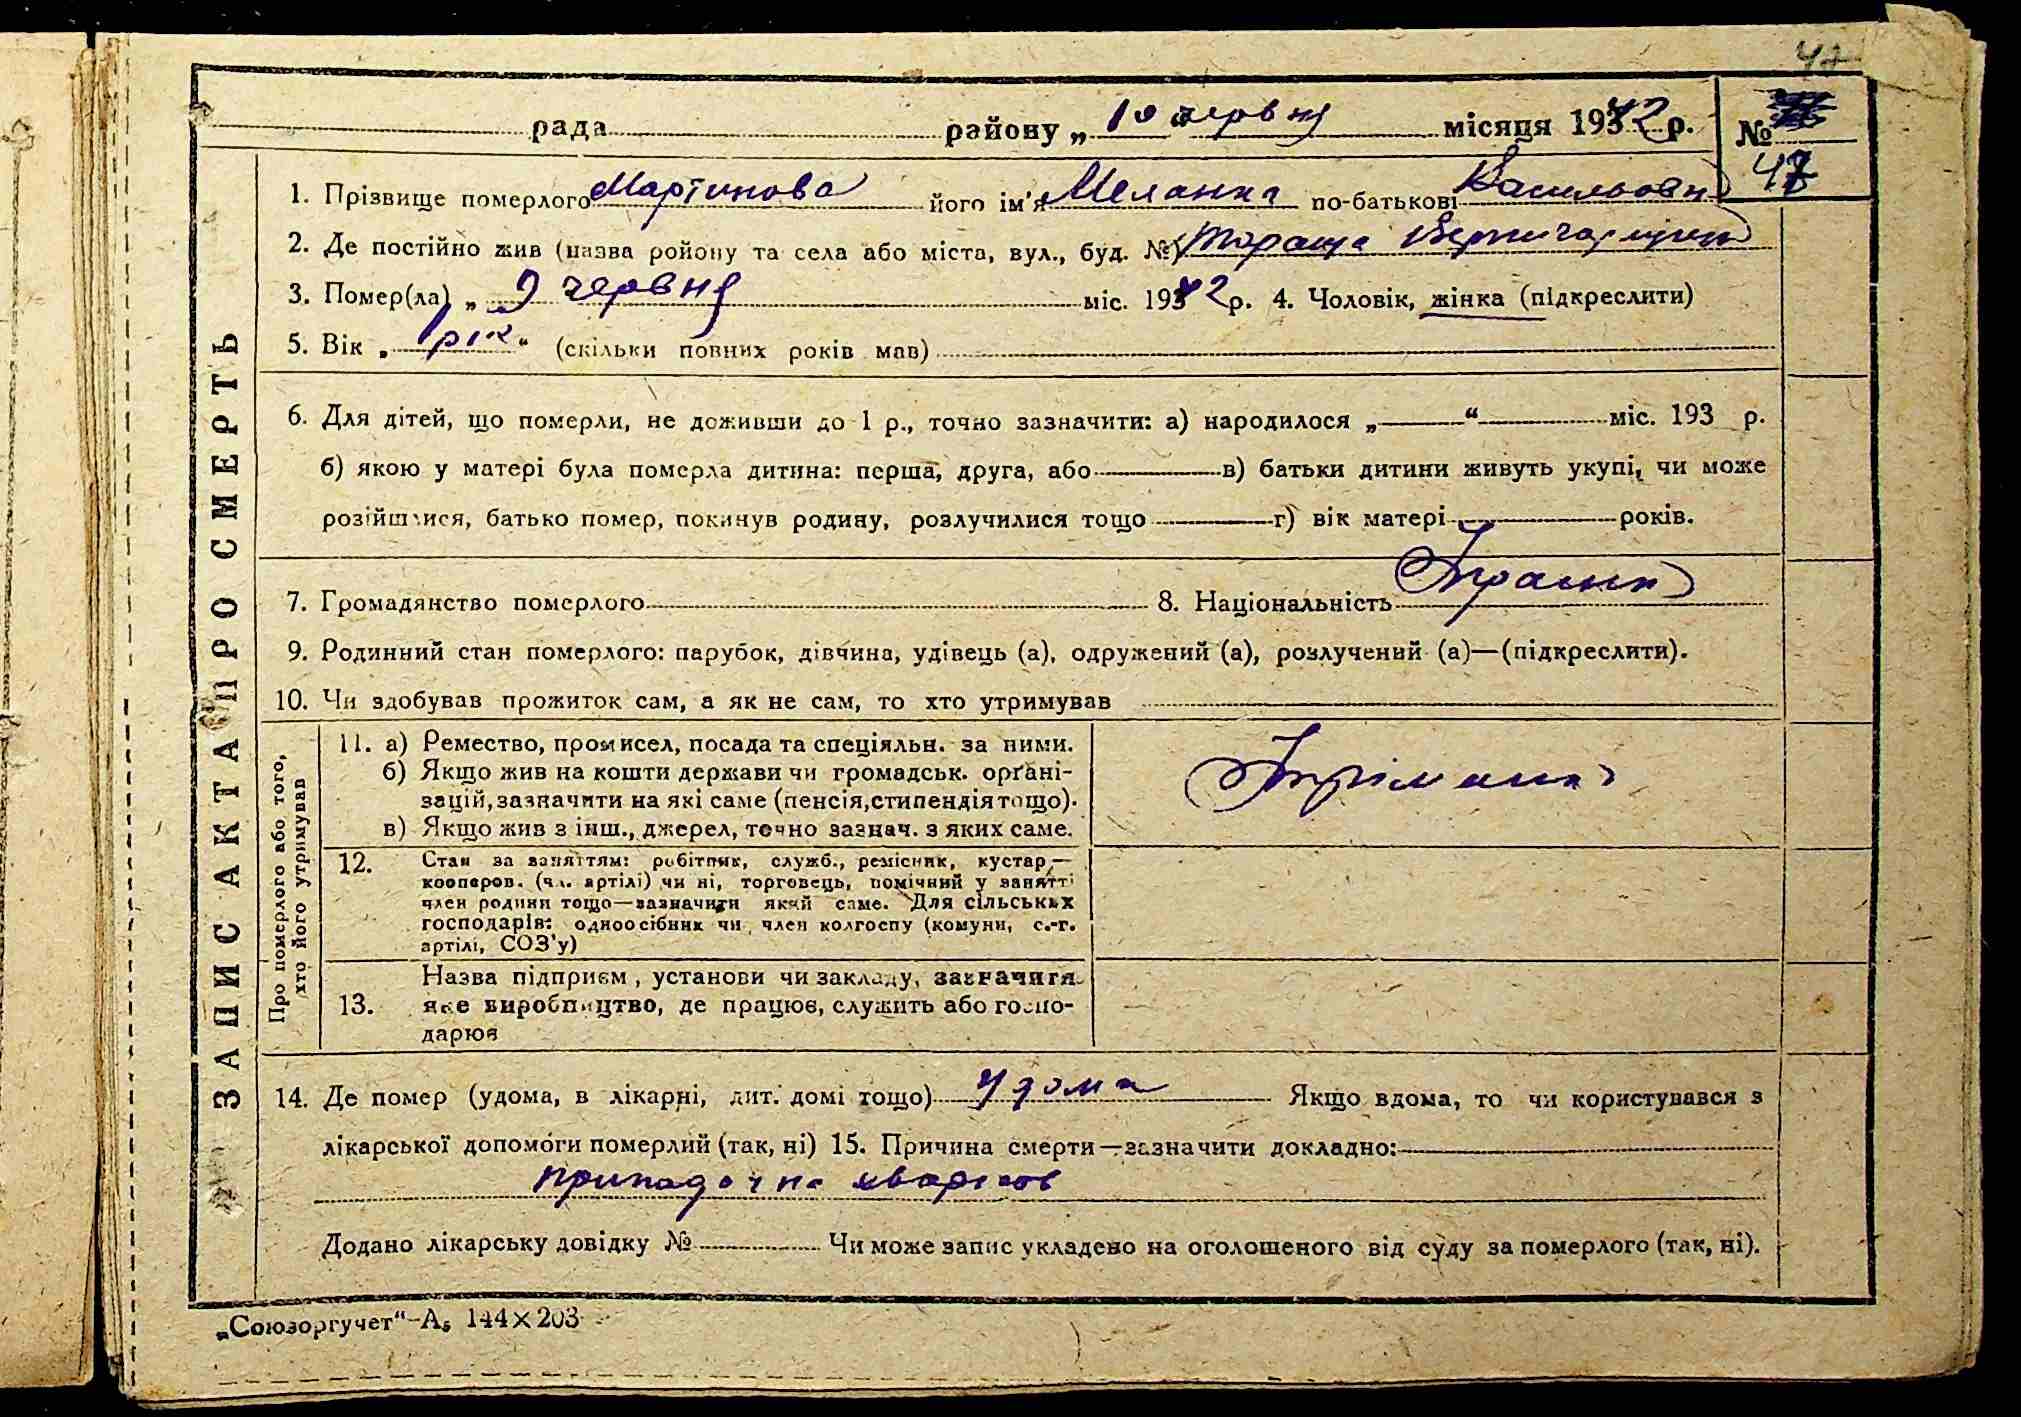 47
рада району „10“ червня місяця 1942 р. №
47
1. Прізвище померлого Мартинова його ім'я Меланка по-батькові Васильовна
2. Де постійно жив (назва ройону та села або міста, вул., буд. №) Тараща
3. Помер(ла) „ 9 червня міс. 1942 р. 4. Чоловік, жінка (підкреслити)
5. Вік „1 рік“ (скільки повних років мав)
6. Для дітей, що померли, не доживши до 1 р., точно зазначити: а) народилося „ “ міс. 193 р.
б) якою у матері була померла дитина: перша, друга, або в) батьки дитини живуть укупі, чи може
розійшлися, батько помер, покинув родину, розлучилися тощо г) вік матері років.
7. Громадянство померлого 8. Національність
9. Родинний стан померлого: парубок, дівчина, удівець (а), одружений (а), розлучений (а)—(підкреслити).
10. Чи здобував прожиток сам, а як не сам, то хто утримував
ЗАПИС АКТА ПРО СМЕРТЬ
Про померлого або того, хто його утримував
11. а) Ремество, промисел, посада та спеціяльн. за ними.
б) Якщо жив на кошти держави чи громадськ. орґані-
зацій, зазначити на які саме (пенсія, стипендія тощо).
в) Якщо жив з інш., джерел, точно зазнач. з яких саме.
12. Стан за заняттям: робітник, служб., ремісник, кустар,—
кооперов. (чл. артілі) чи ні, торговець, помічний у занятті
член родини тощо—зазначити який саме. Для сільських
господарів: одноосібник чи член колгоспу (комуни, с.-г.
артілі, СОЗ'у)
13. Назва підприєм, установи чи закладу, зазначити
яке виробництво, де працює, служить або госпо-
дарює
14. Де помер (удома, в лікарні, дит. домі тощо) удома Якщо вдома, то чи користувався з
лікарської допомоги померлий (так, ні) 15. Причина смерти—зазначити докладно:
припадочна
Додано лікарську довідку № Чи може запис укладено на оголошеного від суду за померлого (так, ні).
„Союзоргучет“-А₅ 144×203